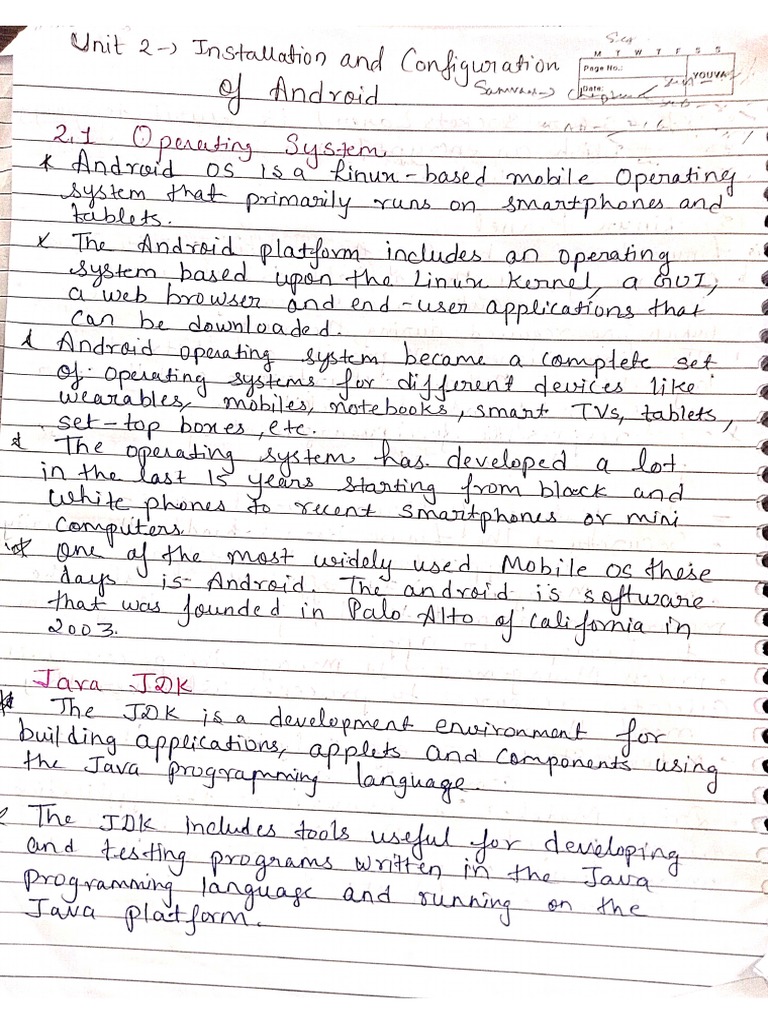 Unit 2 → Installation and Configuration
of Android
M T W T F S S
Page No.:
Date:
YOUVA
2.1 Operating System
* Android OS is a linux-based mobile Operating
system that primarily runs on smartphones and
tablets.
* The Android platform includes an operating
system based upon the Linux Kernel, a GUI,
a web browser and end-user applications that
can be downloaded.
* Android operating system became a complete set
of operating systems for different devices like
wearables, mobiles, notebooks, smart TVs, tablets,
set-top boxes, etc.
* The operating system has developed a lot
in the last 15 years starting from black and
white phones to recent smartphones or mini
computers.
* One of the most widely used Mobile os these
days is Android. The android is software
that was founded in Palo Alto of california in
2003.
Java JDK
* The JDK is a development environment for
building applications, applets and components using
the Java programming language.
* The JDK includes tools useful for developing
and testing programs written in the Java
programming language and running on the
Java platform.